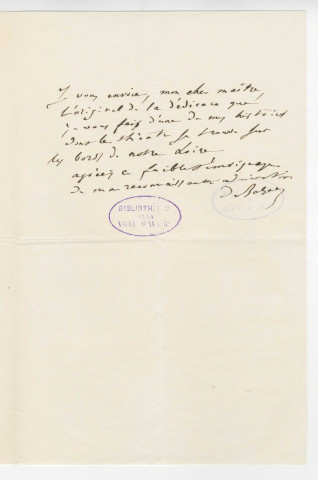 Je vous envoie, mon cher maître,
l'original de la dédicace que
je vous fais d'une de mes histoires
dont le théâtre se trouve sur
les bords de notre Loire
agréez ce faible témoignage
de ma reconnaissante admiration
De Balzac
BIBLIOTHÈQUE
DE LA
VILLE